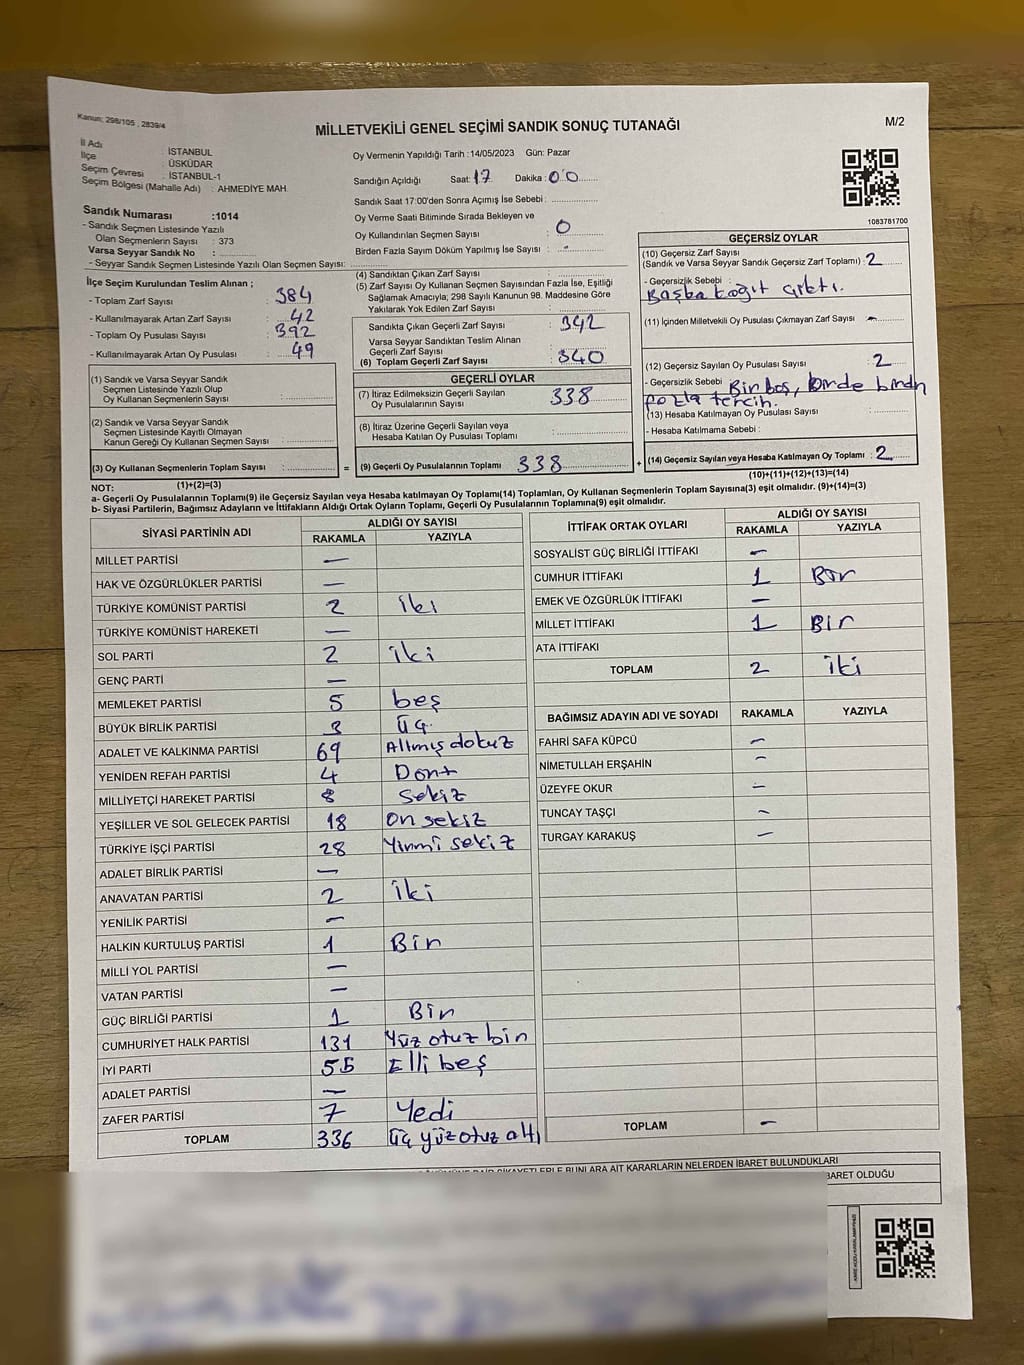 Kanun; 298/105 , 2839/4
MİLLETVEKİLİ GENEL SEÇİMİ SANDIK SONUÇ TUTANAĞI
M/2
İl Adı : İSTANBUL
İlçe : ÜSKÜDAR
Seçim Çevresi : İSTANBUL-1
Seçim Bölgesi (Mahalle Adı) : AHMEDİYE MAH.
Sandık Numarası :1014
- Sandık Seçmen Listesinde Yazılı
Olan Seçmenlerin Sayısı : 373
Varsa Seyyar Sandık No :
- Seyyar Sandık Seçmen Listesinde Yazılı Olan Seçmen Sayısı:
Oy Vermenin Yapıldığı Tarih :14/05/2023 Gün: Pazar
Sandığın Açıldığı Saat: 17 Dakika : 00
Sandık Saat 17:00'den Sonra Açımış İse Sebebi :
Oy Verme Saati Bitiminde Sırada Bekleyen ve
Oy Kullandırılan Seçmen Sayısı : 0
Birden Fazla Sayım Döküm Yapılmış İse Sayısı : -
1083781700
İlçe Seçim Kurulundan Teslim Alınan ;
- Toplam Zarf Sayısı : 384
- Kullanılmayarak Artan Zarf Sayısı : 42
- Toplam Oy Pusulası Sayısı : 392
- Kullanılmayarak Artan Oy Pusulası : 49
(1) Sandık ve Varsa Seyyar Sandık
Seçmen Listesinde Yazılı Olup
Oy Kullanan Seçmenlerin Sayısı :
(2) Sandık ve Varsa Seyyar Sandık
Seçmen Listesinde Kayıtlı Olmayan
Kanun Gereği Oy Kullanan Seçmen Sayısı :
(3) Oy Kullanan Seçmenlerin Toplam Sayısı :
(1)+(2)=(3)
(4) Sandıktan Çıkan Zarf Sayısı :
(5) Zarf Sayısı Oy Kullanan Seçmen Sayısından Fazla İse, Eşitliği
Sağlamak Amacıyla; 298 Sayılı Kanunun 98. Maddesine Göre
Yakılarak Yok Edilen Zarf Sayısı :
Sandıkta Çıkan Geçerli Zarf Sayısı : 342
Varsa Seyyar Sandıktan Teslim Alınan
Geçerli Zarf Sayısı :
(6) Toplam Geçerli Zarf Sayısı : 340
GEÇERLİ OYLAR
(7) İtiraz Edilmeksizin Geçerli Sayılan
Oy Pusulalarının Sayısı : 338
(8) İtiraz Üzerine Geçerli Sayılan veya
Hesaba Katılan Oy Pusulası Toplamı :
= (9) Geçerli Oy Pusulalarının Toplamı : 338
GEÇERSİZ OYLAR
(10) Geçersiz Zarf Sayısı
(Sandık ve Varsa Seyyar Sandık Geçersiz Zarf Toplamı) : 2
- Geçersizlik Sebebi :
Başka kağıt çıktı.
(11) İçinden Milletvekili Oy Pusulası Çıkmayan Zarf Sayısı : -
(12) Geçersiz Sayılan Oy Pusulası Sayısı : 2
- Geçersizlik Sebebi : Bir boş, birde birden
fazla tercih.
(13) Hesaba Katılmayan Oy Pusulası Sayısı :
- Hesaba Katılmama Sebebi :
+ (14) Geçersiz Sayılan veya Hesaba Katılmayan Oy Toplamı : 2
(10)+(11)+(12)+(13)=(14)
NOT:
a- Geçerli Oy Pusulalarının Toplamı(9) ile Geçersiz Sayılan veya Hesaba katılmayan Oy Toplamı(14) Toplamları, Oy Kullanan Seçmenlerin Toplam Sayısına(3) eşit olmalıdır. (9)+(14)=(3)
b- Siyasi Partilerin, Bağımsız Adayların ve İttifakların Aldığı Ortak Oyların Toplamı, Geçerli Oy Pusulalarının Toplamına(9) eşit olmalıdır.
SİYASİ PARTİNİN ADI ALDIĞI OY SAYISI
RAKAMLA YAZIYLA
MİLLET PARTİSİ —
HAK VE ÖZGÜRLÜKLER PARTİSİ —
TÜRKİYE KOMÜNİST PARTİSİ 2 iki
TÜRKİYE KOMÜNİST HAREKETİ —
SOL PARTİ 2 iki
GENÇ PARTİ —
MEMLEKET PARTİSİ 5 beş
BÜYÜK BİRLİK PARTİSİ 3 üç
ADALET VE KALKINMA PARTİSİ 69 Altmış dokuz
YENİDEN REFAH PARTİSİ 4 Dört
MİLLİYETÇİ HAREKET PARTİSİ 8 sekiz
YEŞİLLER VE SOL GELECEK PARTİSİ 18 On sekiz
TÜRKİYE İŞÇİ PARTİSİ 28 Yirmi sekiz
ADALET BİRLİK PARTİSİ —
ANAVATAN PARTİSİ 2 iki
YENİLİK PARTİSİ —
HALKIN KURTULUŞ PARTİSİ 1 Bir
MİLLİ YOL PARTİSİ —
VATAN PARTİSİ —
GÜÇ BİRLİĞİ PARTİSİ 1 Bir
CUMHURİYET HALK PARTİSİ 131 Yüz otuz bir
İYİ PARTİ 55 Elli beş
ADALET PARTİSİ —
ZAFER PARTİSİ 7 Yedi
TOPLAM 336 üç yüz otuz altı
İTTİFAK ORTAK OYLARI ALDIĞI OY SAYISI
RAKAMLA YAZIYLA
SOSYALİST GÜÇ BİRLİĞİ İTTİFAKI —
CUMHUR İTTİFAKI 1 Bir
EMEK VE ÖZGÜRLÜK İTTİFAKI —
MİLLET İTTİFAKI 1 Bir
ATA İTTİFAKI
TOPLAM 2 iki
BAĞIMSIZ ADAYIN ADI VE SOYADI RAKAMLA YAZIYLA
FAHRİ SAFA KÜPCÜ —
NİMETULLAH ERŞAHİN —
ÜZEYFE OKUR —
TUNCAY TAŞÇI —
TURGAY KARAKUŞ —
TOPLAM —
ŞİKAYETLERLE BUNLARA AİT KARARLARIN NELERDEN İBARET BULUNDUKLARI
İBARET OLDUĞU